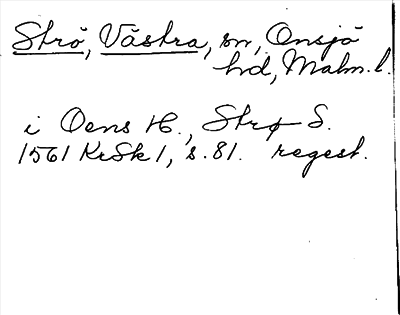 Strö, Västra, sn, Onsjö
hd, Malm. l.
i Oens H., Strø S.
1561 KrSk 1, s. 81. regest.